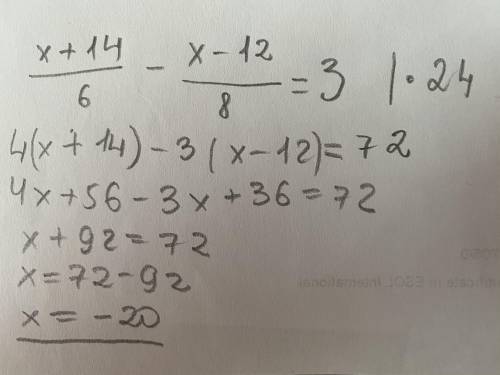 (x+14)/6 - (x-12)/8 = 3 |·24
4(x+14)-3(x-12)=72
4x+56-3x+36=72
x+92=72
x=72-92
x=-20